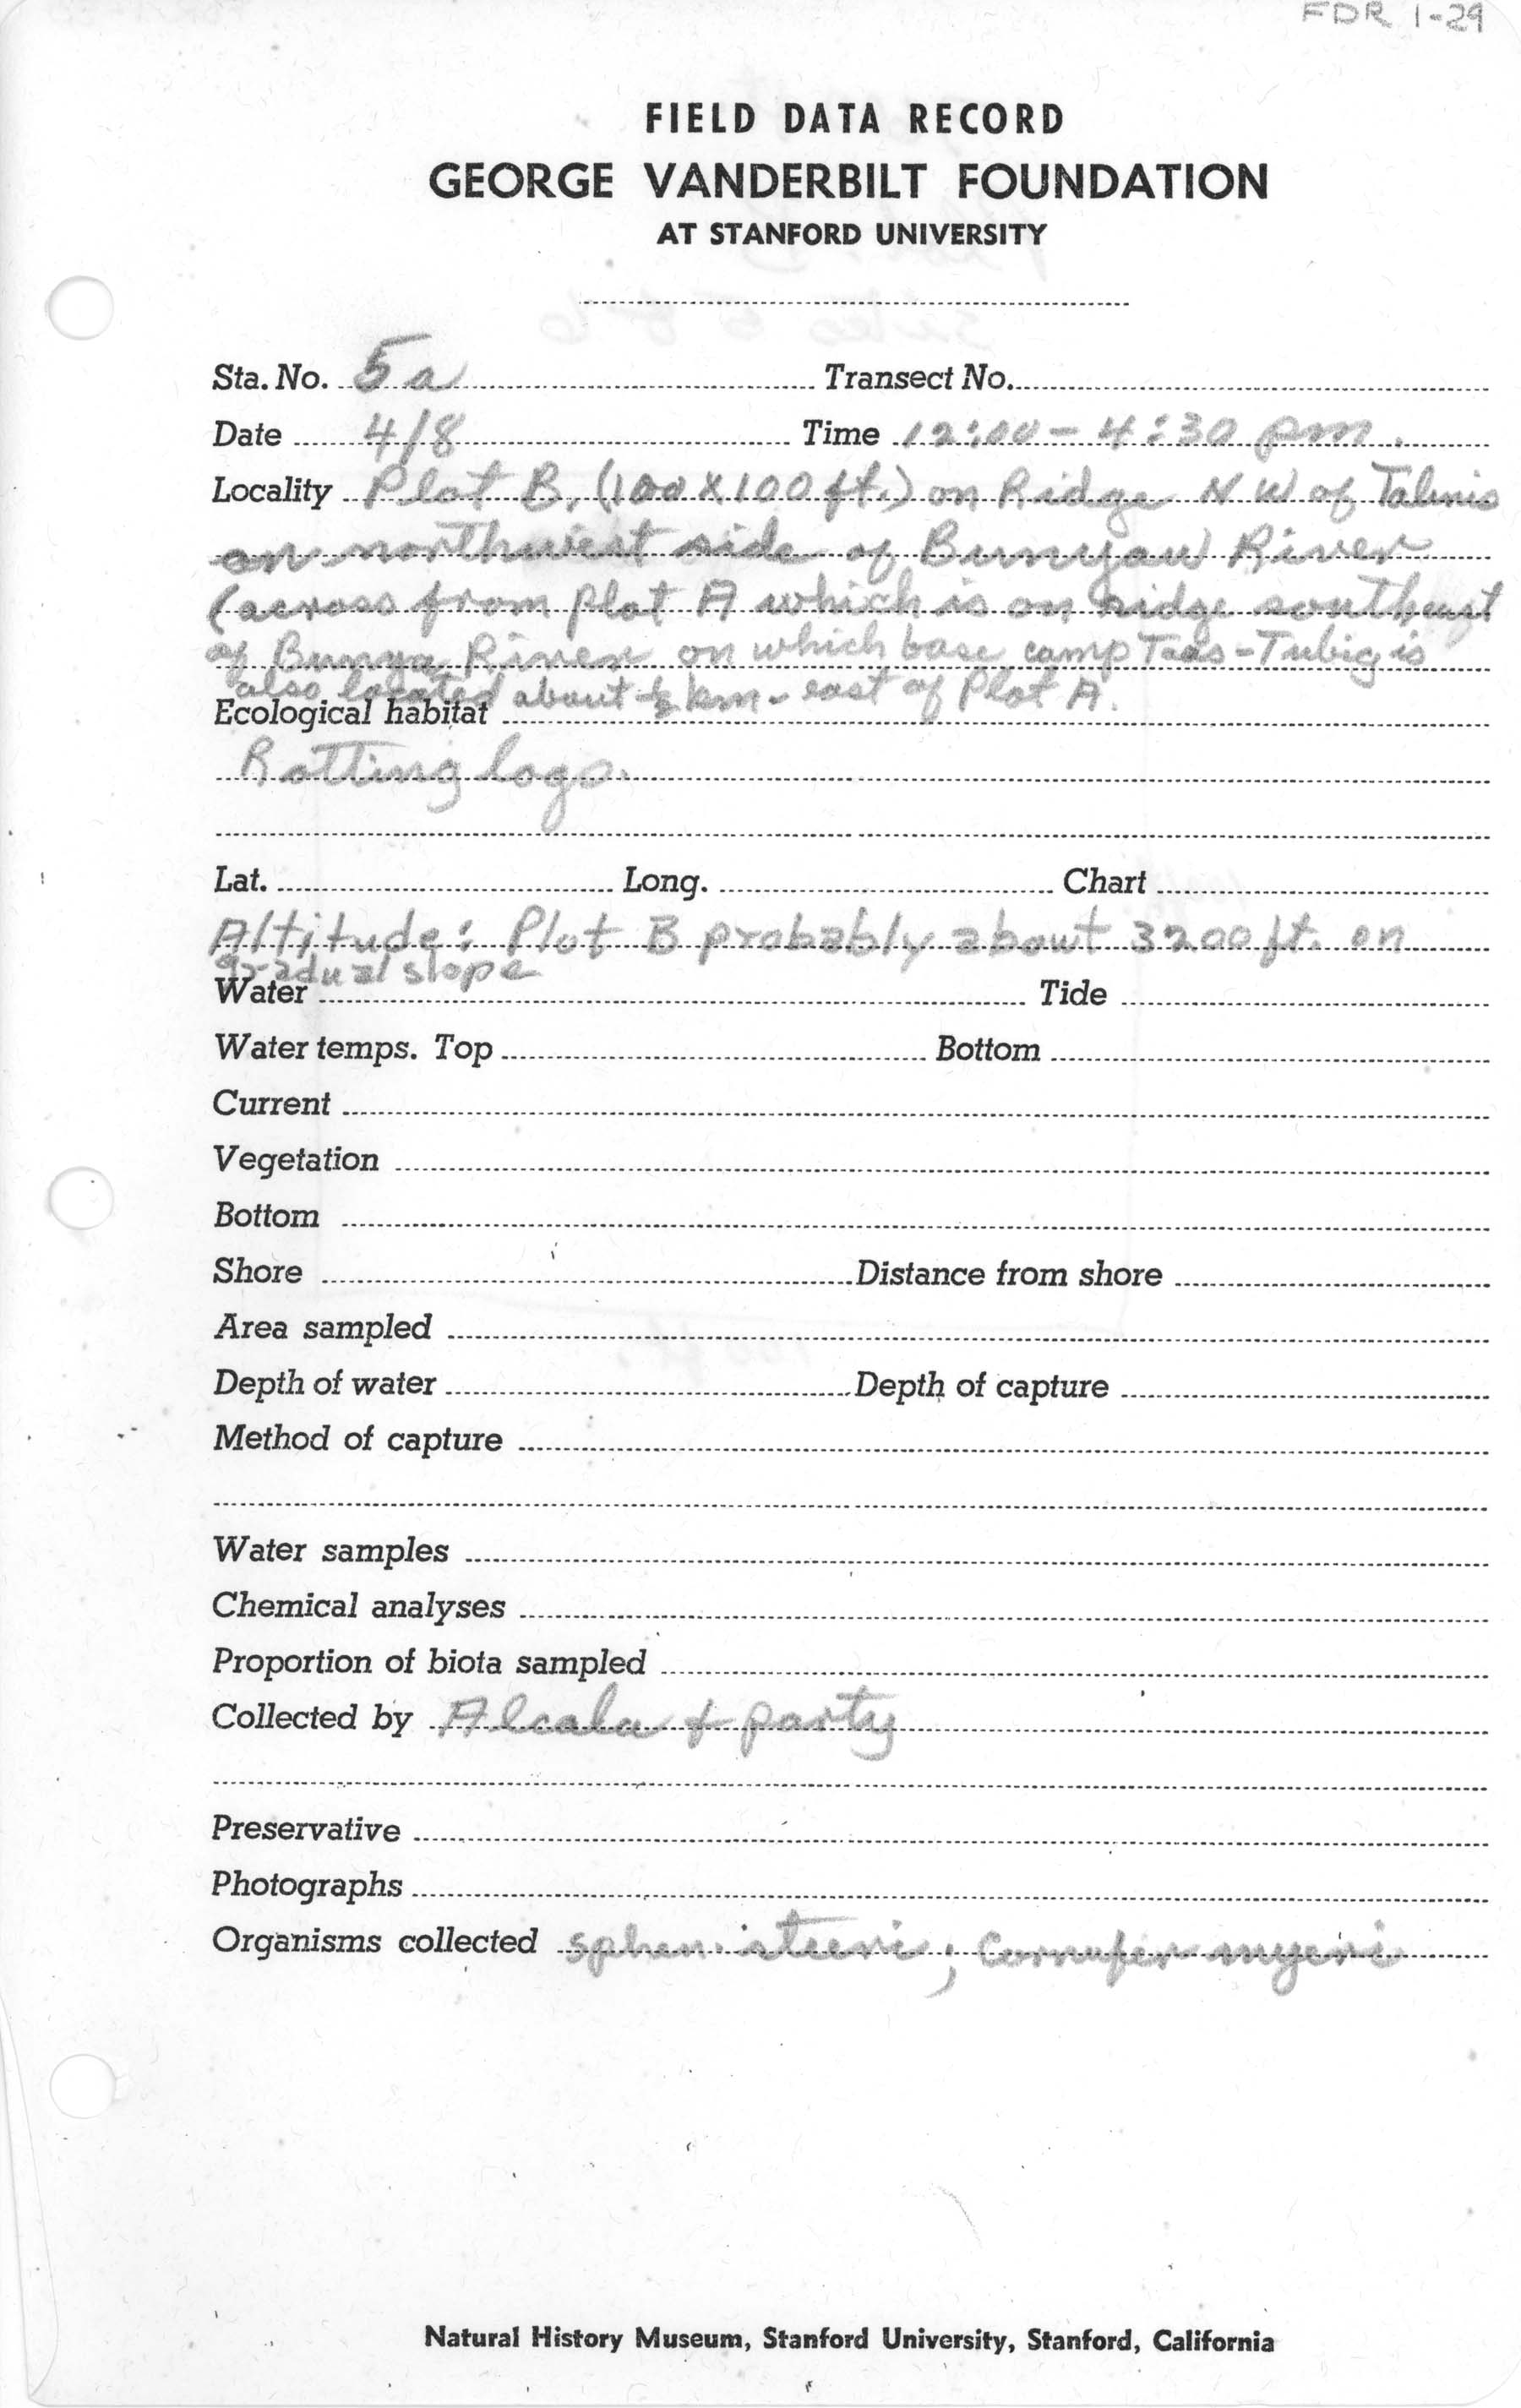 FDR 1-29
FIELD DATA RECORD
GEORGE VANDERBILT FOUNDATION
AT STANFORD UNIVERSITY
Sta. No. 5a Transect No.
Date 4/8 Time 12:00 - 4:30 pm.
Locality Plot B, (100 X 100 ft.) on Ridge NW of Talinis
on northwest side of Bunyau River
(across from plot A which is on ridge southeast
of Bunya River on which base camp Taas-Tubig is
also located about ½ km. east of Plot A.
Ecological habitat
Rotting logs.
Lat. Long. Chart
Altitude: Plot B probably about 3200 ft. on
gradual slope
Water Tide
Water temps. Top Bottom
Current
Vegetation
Bottom
Shore Distance from shore
Area sampled
Depth of water Depth of capture
Method of capture
Water samples
Chemical analyses
Proportion of biota sampled
Collected by Alcala + party
Preservative
Photographs
Organisms collected Sphen. steeri; Cornufer meyeri
Natural History Museum, Stanford University, Stanford, California